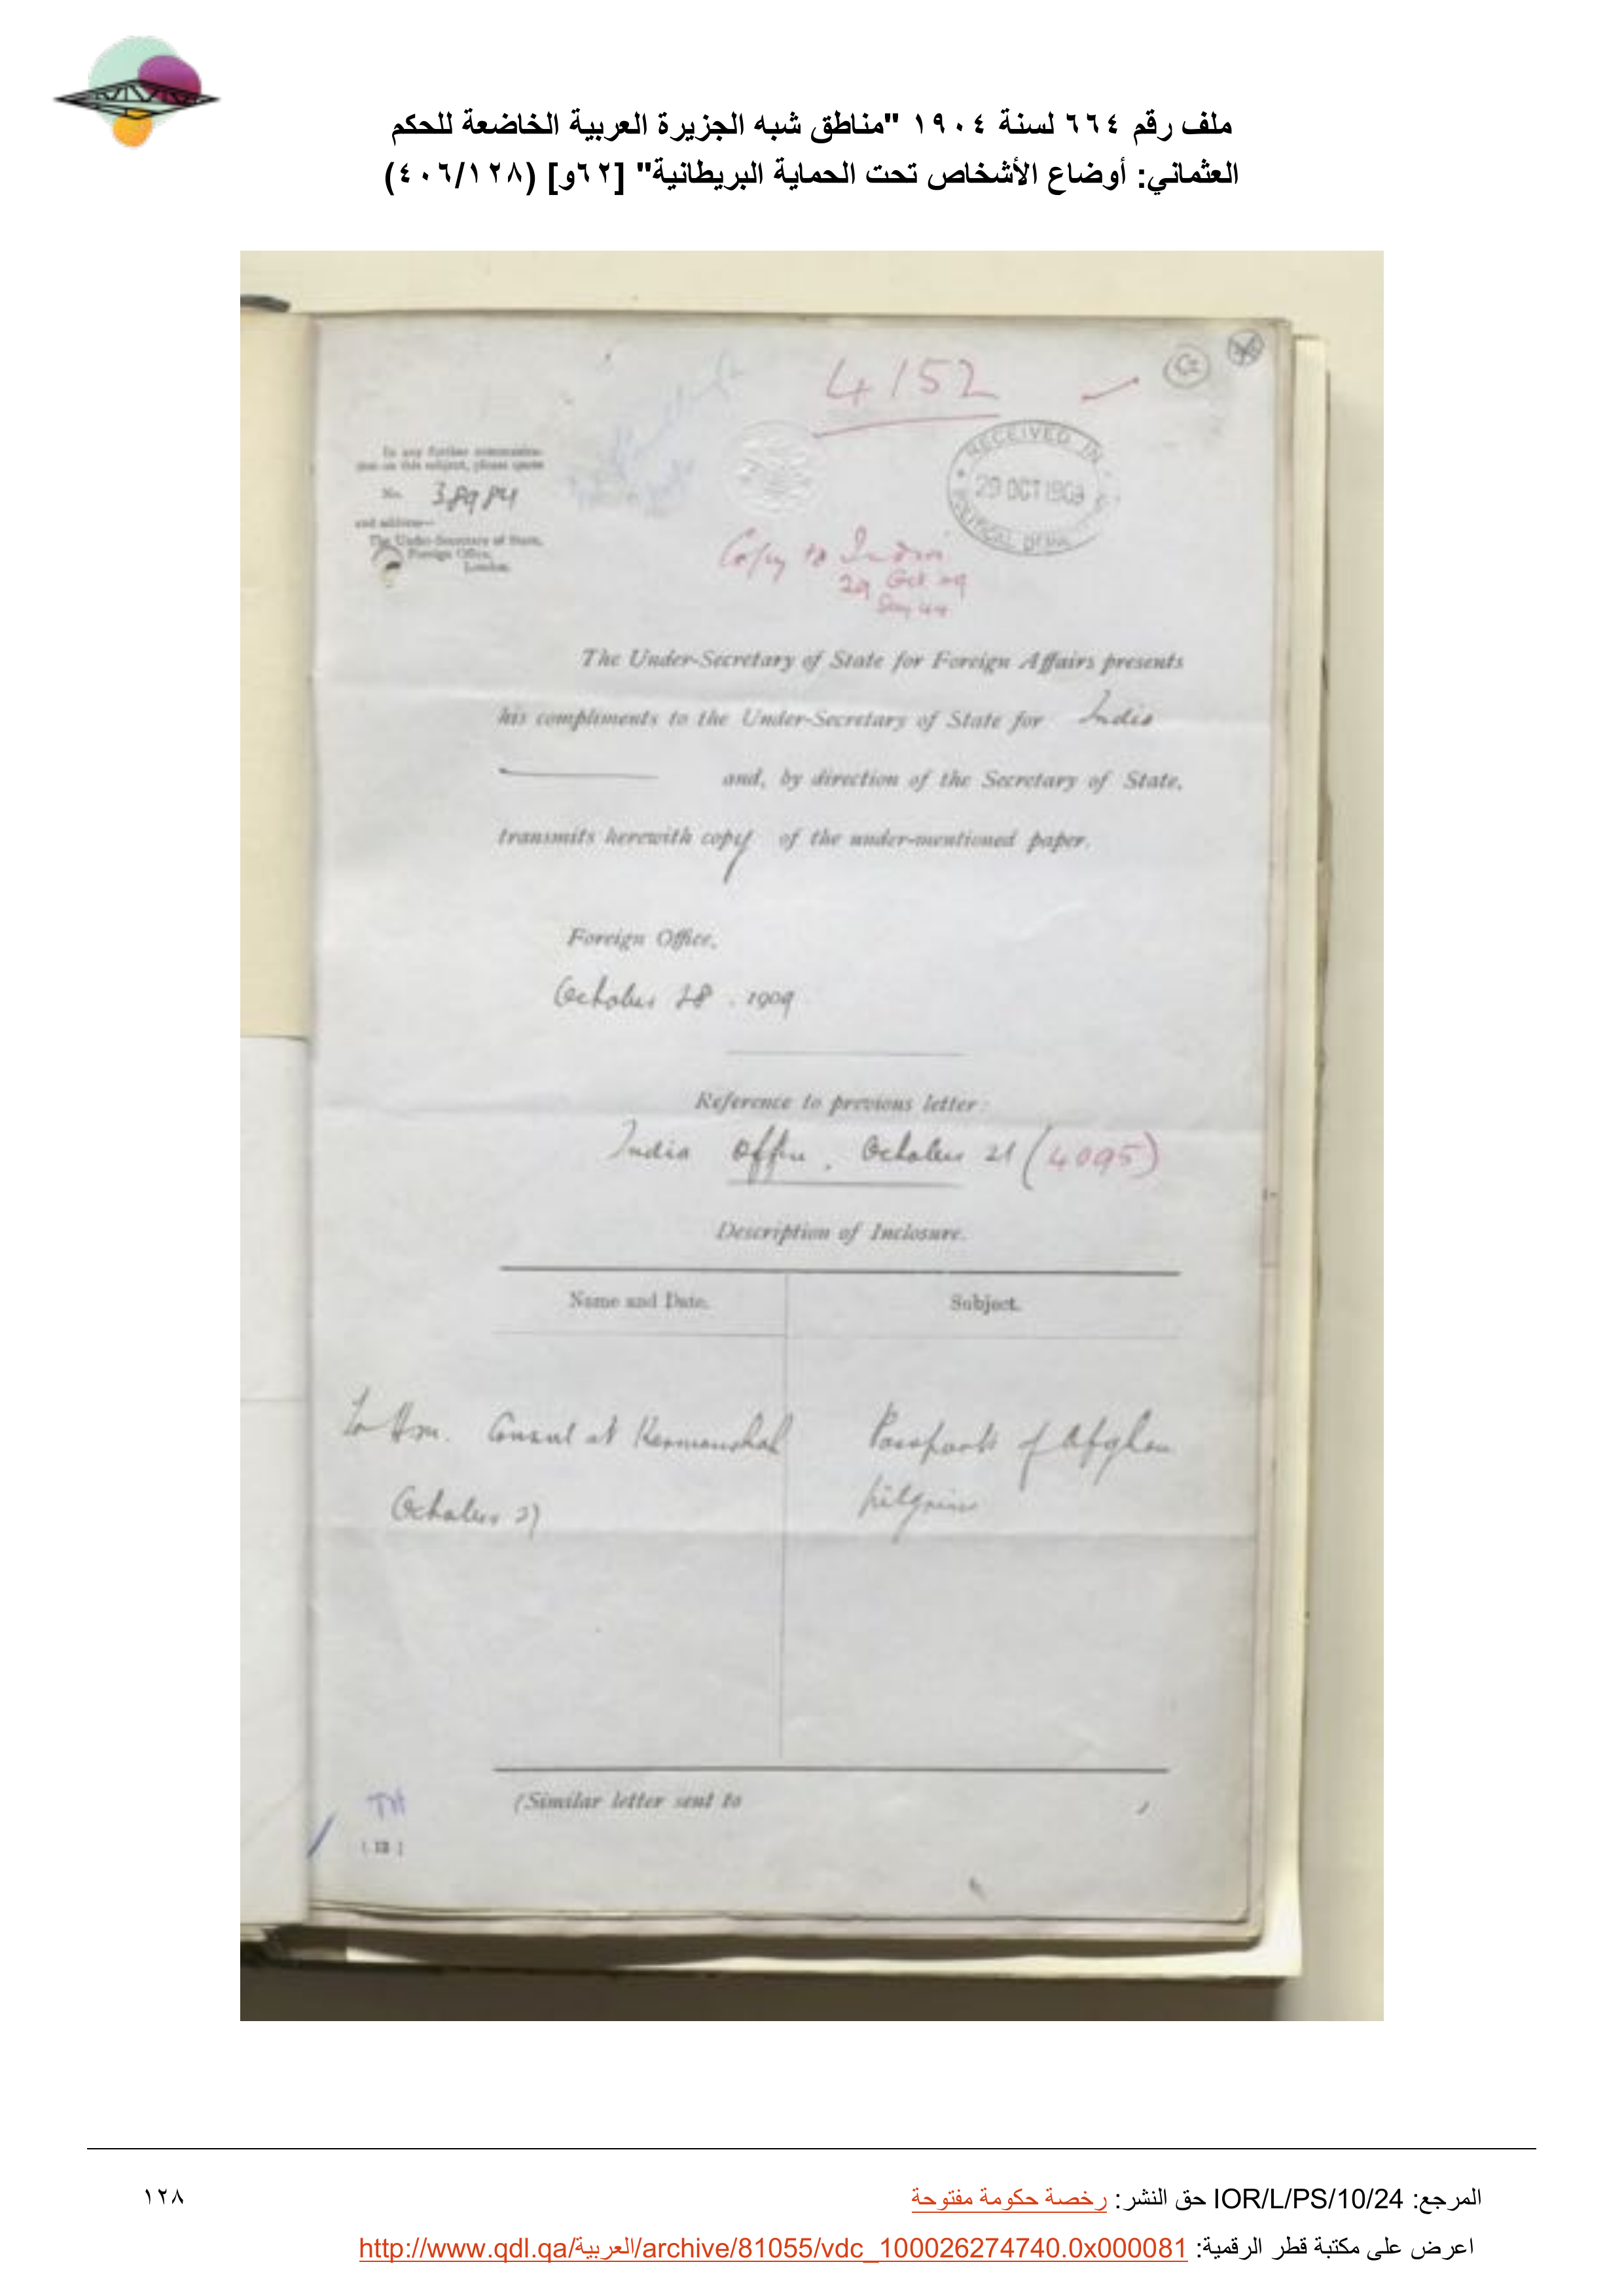 ملف رقم ٦٦٤ لسنة ١٩٠٤ "مناطق شبه الجزيرة العربية الخاضعة للحكم
العثماني: أوضاع الأشخاص تحت الحماية البريطانية" [٦٢و] (٤٠٦/١٢٨)
4152
62
In any further communica-
tion on this subject, please quote
No. 38984
and address—
The Under-Secretary of State,
Foreign Office,
London.
RECEIVED IN
29 OCT 1909
POLITICAL DEPT
Copy to India
29 Oct 09
The Under-Secretary of State for Foreign Affairs presents
his compliments to the Under-Secretary of State for India
and, by direction of the Secretary of State,
transmits herewith copy of the under-mentioned paper.
Foreign Office,
October 28. 1909
Reference to previous letter:
India Office, October 21 (4095)
Description of Inclosure.
Name and Date.
Subject.
To H.M. Consul at Kermanshah
October 27
Passports of Afghan
pilgrims
(Similar letter sent to )
TH
المرجع: IOR/L/PS/10/24 حق النشر: رخصة حكومة مفتوحة
١٢٨
اعرض على مكتبة قطر الرقمية: http://www.qdl.qa/العربية/archive/81055/vdc_100026274740.0x000081